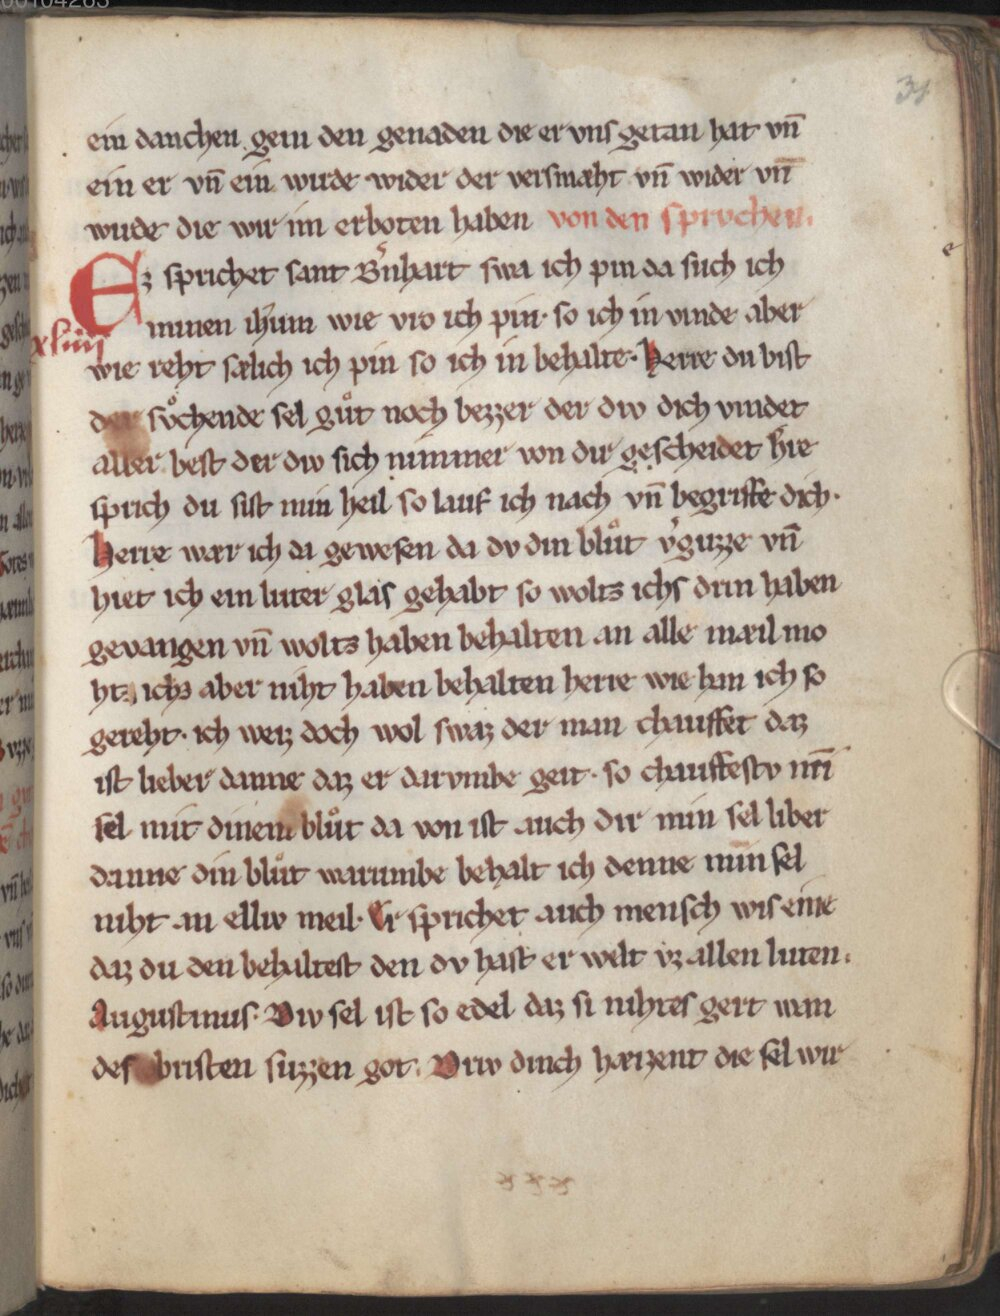 00104263
31
ein danchen gein den genaden die er vns getan hat vn̄
ein er vn̄ ein wirde wider der versmæht vn̄ wider vn
wirde die wir im erboten haben von den sprvchen.
Ez sprichet sant B̄nhart swa ich pin da such ich
minen ih̄um wie vro ich pin· so ich in vinde aber
xliiij
wie reht sælich ich pin so ich in behalte· Herre du bist
der sůchende sel gůt noch bezzer der div dich vindet
aller best der div sich nimmer von dir gescheidet h̄re
sprich du sist min heil so lauf ich nach vn̄ begriffe dich·
Herre wær ich da gewesen da dv din blůt v̓guzze vn̄
hiet ich ein luter glas gehabt so woltz ichs drin haben
gevangen vn̄ woltz haben behalten an alle mæil mo
htz ichz aber niht haben behalten herre wie han ich so
gereht· ich weiz doch wol swaz der man chauffet daz
ist lieber danne daz er darvmbe geit· so chauffestv min
sel mit dinem blůt da von ist auch dir min sel liber
danne din blůt warumbe behalt ich denne min sel
niht an elliv meil· Er sprichet auch mensch wis eine
daz du den behaltest den dv hast er welt vz allen luten·
Augustinus· Div sel ist so edel daz si nihtes gert wan
des obristen suzzen got· Driv dinch hæizent die sel wir
xxx